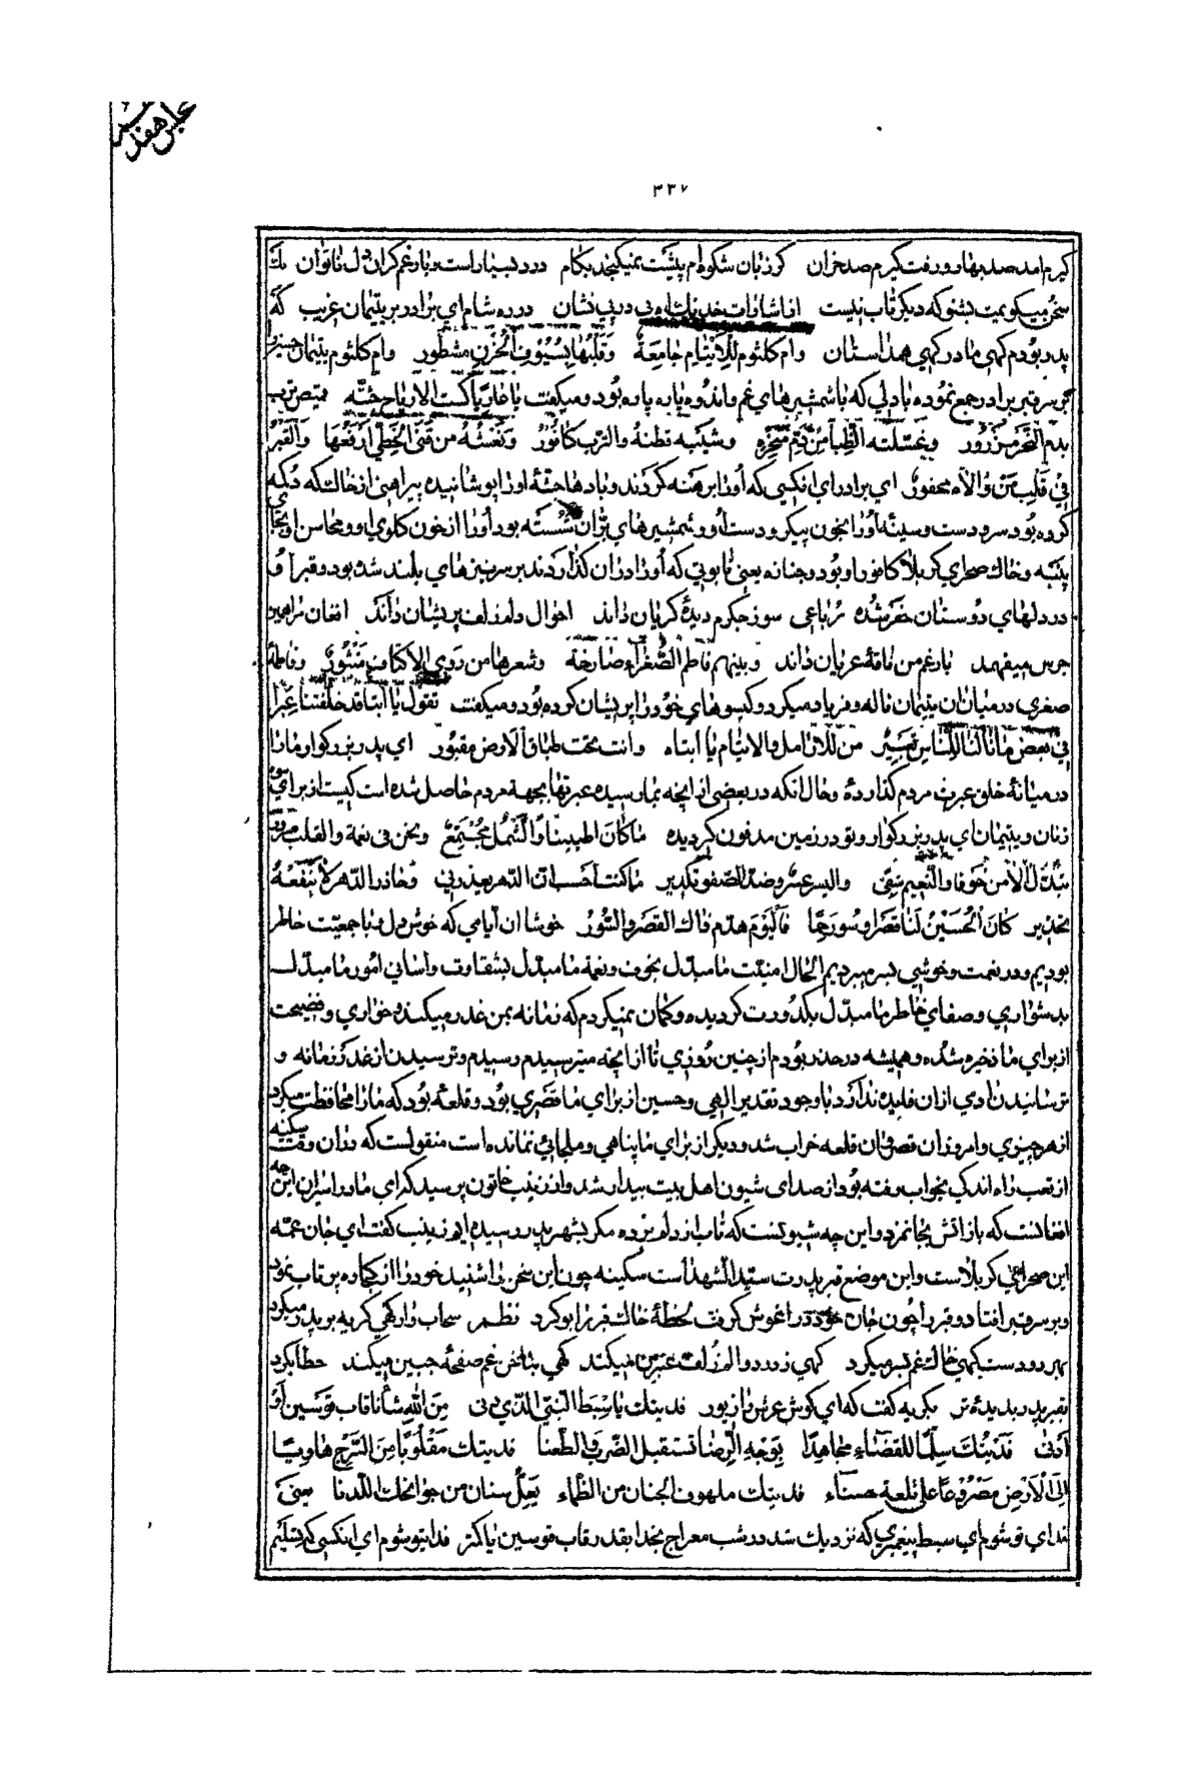 مجلس هفدهم
٣٣٧
کیرم امد صد بهار و رفت کیرم صد خزان کر زبان شکوه‌ام پیشت نمیکنجد بکام درد بسیار است و بار غم کران دل ناتوان یك
سخن میکویمت بشنو که دیکر تاب نیست از اشارات در پی نشان در ره شام ای برادر بر یتیمان غریب که
پدر بودم کهی مادر کهی همداستان وام کلثوم للایتام جامعة وقلبها بسیوف الحزن مشطور وام کلثوم یتیمان حسین را
بر سر قبر برادر جمع نموده با دلی که با شمشیرهای غم و اندوه پاره پاره بود و میکفت یا عاریا کست الاریاح جثته قمیص ترب
بدم النحر مزرور وغسلته الظبا من دم منحره وشیبه قطنه والترب کافور ونعشه من قنی الخطی ارفعها والقبر
فی قلب من والاه محفور ای برادر ای انکسی که او را برهنه کردند و بادها جثهٔ او را پوشانیده پیراهنی از خاك که تکمه
کرده بود سر و دست و سینه او را بخون پیکر و دست او و شمشیرهای بران شسته بود او را از خون کلوی او و محاسن او بجای
پنبه و خاك صحرای کربلا کافور او بود و جنازه یعنی تابوتی که او را دران کذاردند بر سر نیزهای بلند شد بود و قبر او
در دلهای دوستان حفر شده رباعی سوز جکرم دیدهٔ کریان داند احوال دلم زلف پریشان داند افغان مرا همین
جرس میفهمد بار غم من ناقهٔ عریان داند وبینهم فاطم الصغراء صارخة وشعرها من منثور وفاطمهٔ
صغری در میان ان یتیمان ناله و فریاد میکرد و کیسوهای خود را پریشان کرده بود و میکفت تقول یا ابتا قد خلفتنا عبرا
فی بعض ما نالنا للناس تعبیر من للارامل والایتام یا ابتاه وانت تحت طباق الارض مقبور ای پدر بزرکوار ما را
در میانهٔ خلق عبرت مردم کذاردهٔ و حال انکه در بعضی از انچه بما رسیده عبرتها بجههٔ مردم حاصل شده است کیست از برای
زنان و یتیمان ای پدر بزرکوار و تو در زمین مدفون کردیده ما کان اطیبنا والشمل مجتمع ونحن فی نعمة والقلب مسرور
تبدل الامن خوفا والنعیم شقی والیسر عسر وضد الصفو تکدیر ما کنت احسب ان الدهر یغدر بی وحاذر الدهر لا ینفعه
تحذیر کان الحسین لنا قصرا وسور حما فالیوم هدم ذاك القصر والسور خوشا ان ایامی که خوش دل و با جمعیت خاطر
بودیم و در نعمت و خوشی بسر میبردیم الحال امنیت ما مبدل بخوف و نعمة ما مبدل بشقاوت و اسانی امور ما مبدل
بدشواری و صفای خاطر ما مبدل بکدورت کردیده و کمان نمیکردم که زمانه بمن غدر میکند و خواری و فضیحت
از برای ما ذخیره شده و همیشه در حذر بودم از چنین روزی تا از انچه میترسیدم رسیدم و ترسیدن از غدر زمانه و
ترسانیدن ادمی ازان فایده ندارد با وجود تقدیر الهی و حسین از برای ما قصری بود و قلعه بود که ما را محافظت میکرد
از هر چیزی و امروز ان قصر و ان قلعه خراب شد و دیکر از برای ما پناهی و ملجائی نمانده است منقولست که دران وقت سکینه
از تعب راه اندکی بخواب رفته بود از صدای شیون اهل بیت بیدار شد و از زینب خاتون پرسید که ای مادر اسیران این چه
افغانست که باز اتش بجانم زد و این چه شیونست که تاب از دلم برده مکر بشهر پدر رسیده‌ایم زینب کفت ای جان عمه
این صحرای کربلاست و این موضع قبر پدرت سید الشهداست سکینه چون این سخن را شنید خود را از کجاوه پرتاب نمود
و بر سر قبر افتاد و قبر را چون جان خود در اغوش کرفت لحظهٔ خاك قبر را بو کرد نظم سحاب وار کهی کریه بر پدر میکرد
بهر دو دست کهی خاك غم بسر میکرد کهی ز درد دل و زلف عنبرین میکند کهی بناخن غم صفحهٔ جبین میکند خطاب کرد
بقبر پدر بدیدهٔ تر بکریه کفت که ای کوش عرش را زیور فدیتك یا سبط النبی الذی دنی من الله شأنا قاب قوسین او
ادنی فدیتك سلما للقضاء مجاهدا بوجه الرضا تستقبل الضرب والطعنا فدیتك مقلوبا من السرج هاویا
الی الارض مصروعا علی تلعة حسناء فدیتك ملهوف الجنان من الظماء یعل سنان من جوانحك اللدنا یعنی
فدای تو شوم ای سبط پیغمبری که نزدیك شد در شب معراج بخدا بقدر قاب قوسین یا کمتر فدایتو شوم ای انکسی که تسلیم